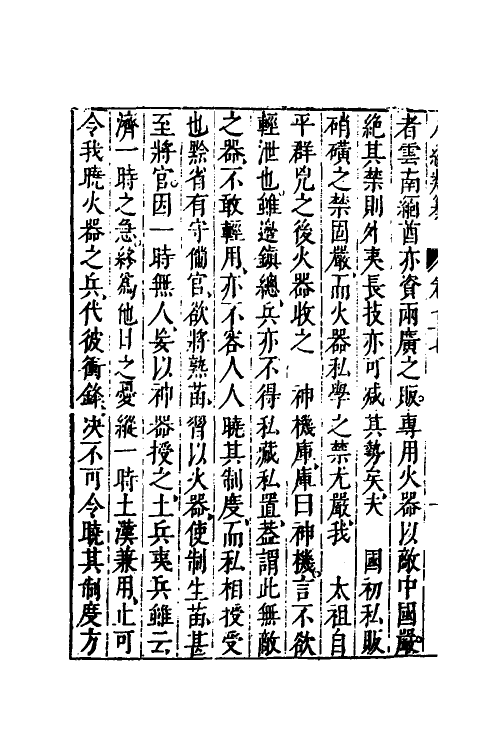 者雲南緬酋亦資兩廣之販。專用火器以敵中國嚴
絕其禁則外夷長技亦可减其勢矣夫　國初私販
硝磺之禁固嚴而火器私學之禁尤嚴我　太祖自
平群兇之後火器收之　神機庫庫曰神機言不欲
輕泄也雖邊鎮總兵亦不得私藏私置葢謂此無敵
之器不敢輕用亦不容人人曉其制度而私相授受
也黔省有守備官欲將熟苗習以火器使制生苗甚
至將官因一時無人妄以神器授之土兵夷兵雖云
濟一時之急終爲他日之憂縱一時土漢兼用止可
令我曉火器之兵代彼衝鋒决不可令曉其制度方